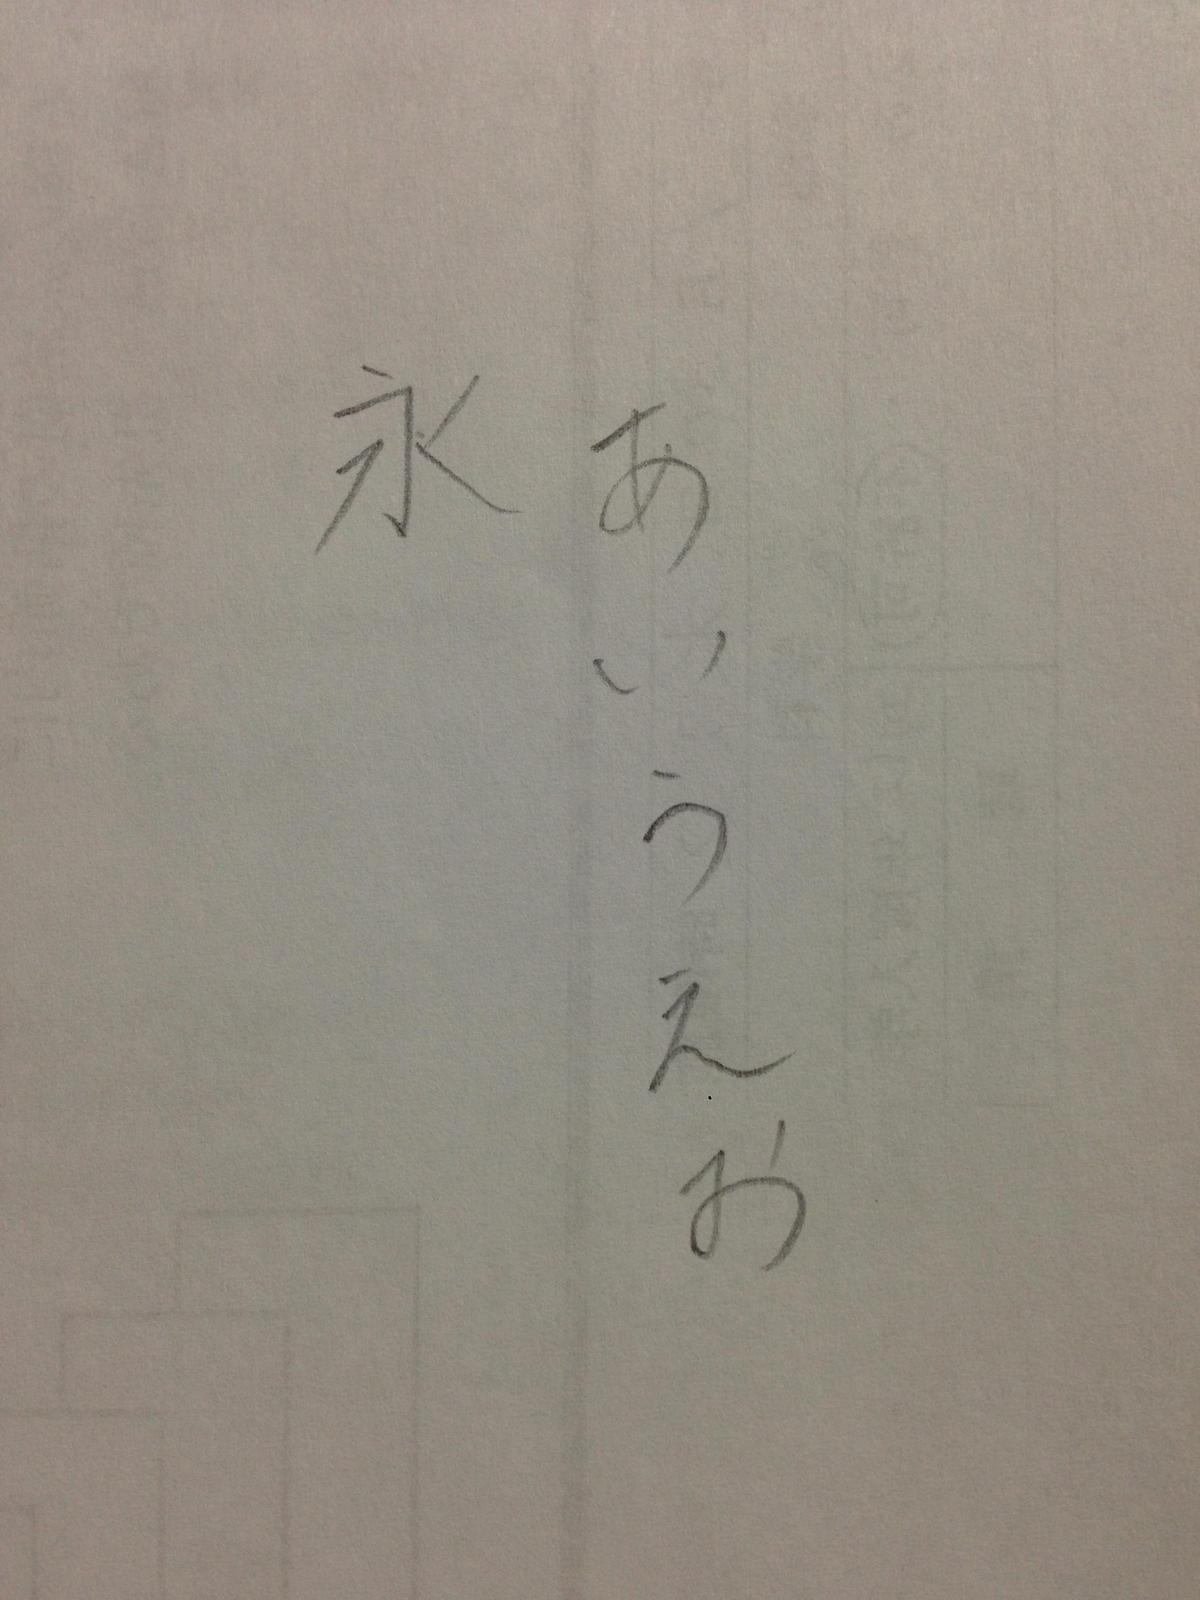 あいうえお
永